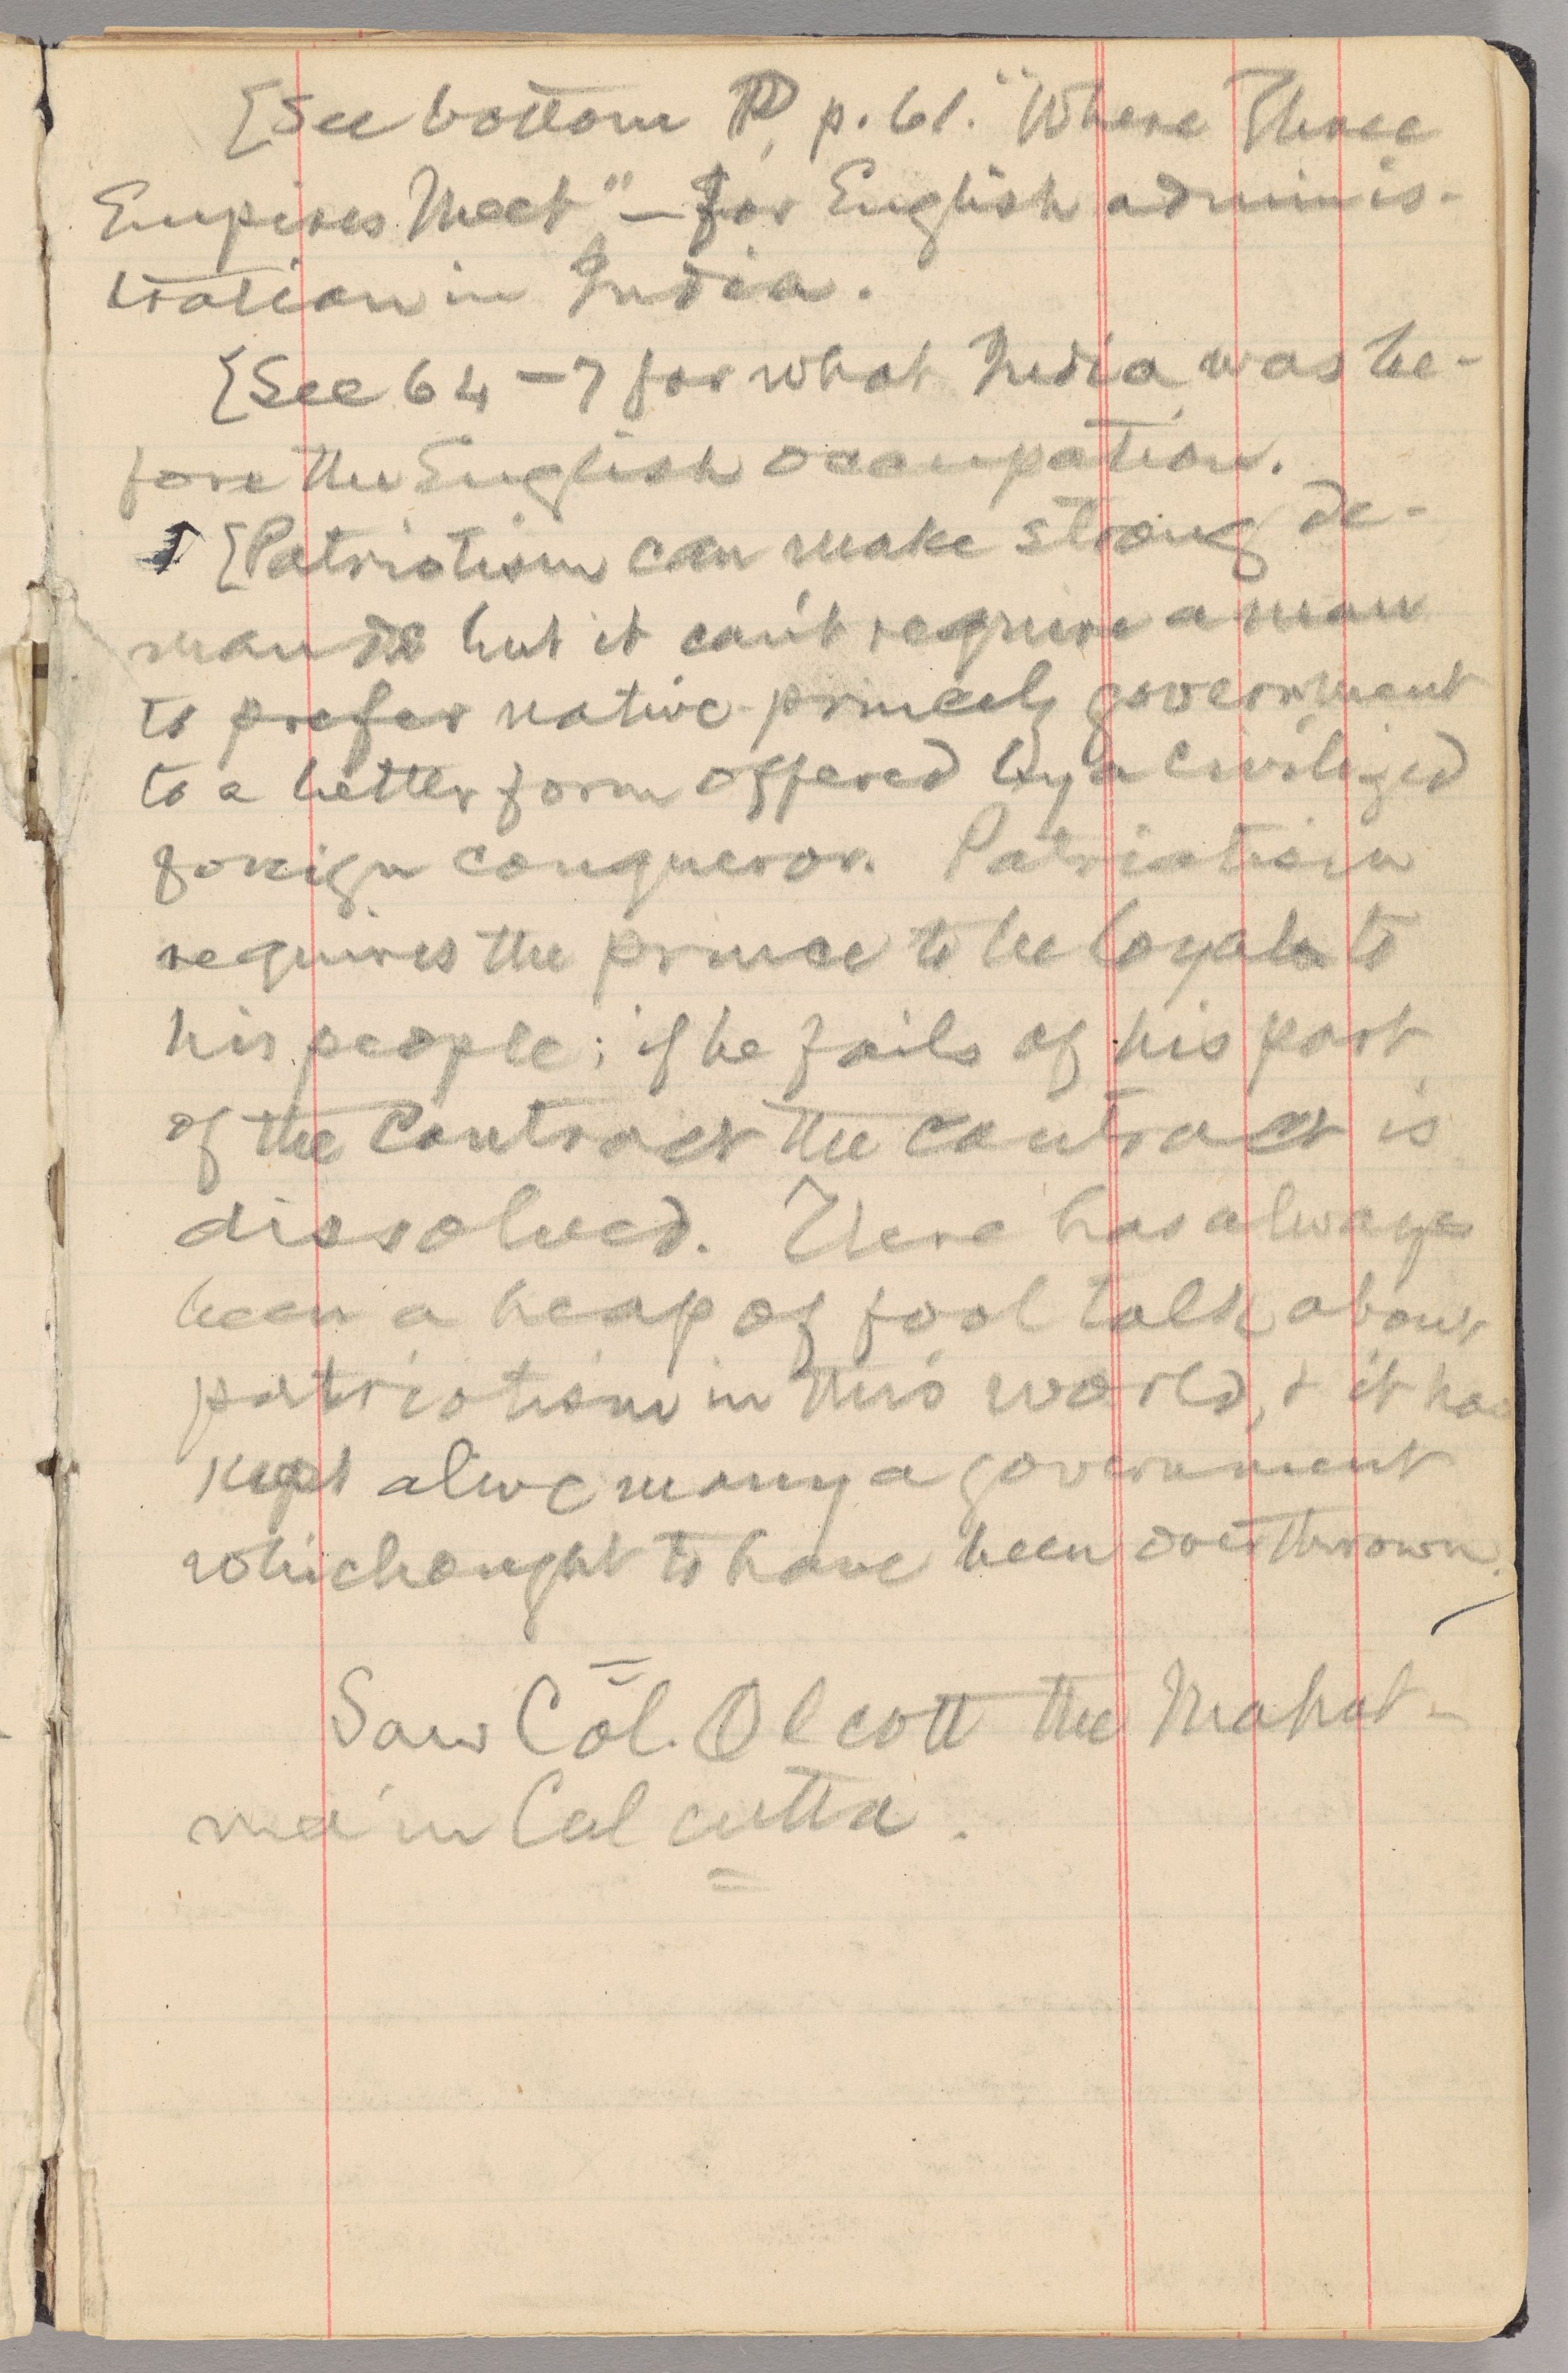 [See bottom ¶, p. 61. "Where Three
Empires Meet" — for English adminis-
tration in India.
[See 64-7 for what India was be-
fore the English occupation.
[Patriotism can make strong de-
mands but it can't require a man
to prefer native-princely government
to a better form offered by a civilized
foreign conqueror. Patriotism
requires the prince to be loyal to
his people; if he fails of his part
of the contract the contract is
dissolved. There has always
been a heap of fool talk about
patriotism in this world, & it has
kept alive many a government
which ought to have been overthrown.
Saw Col. Olcott the Mahat-
ma in Calcutta.